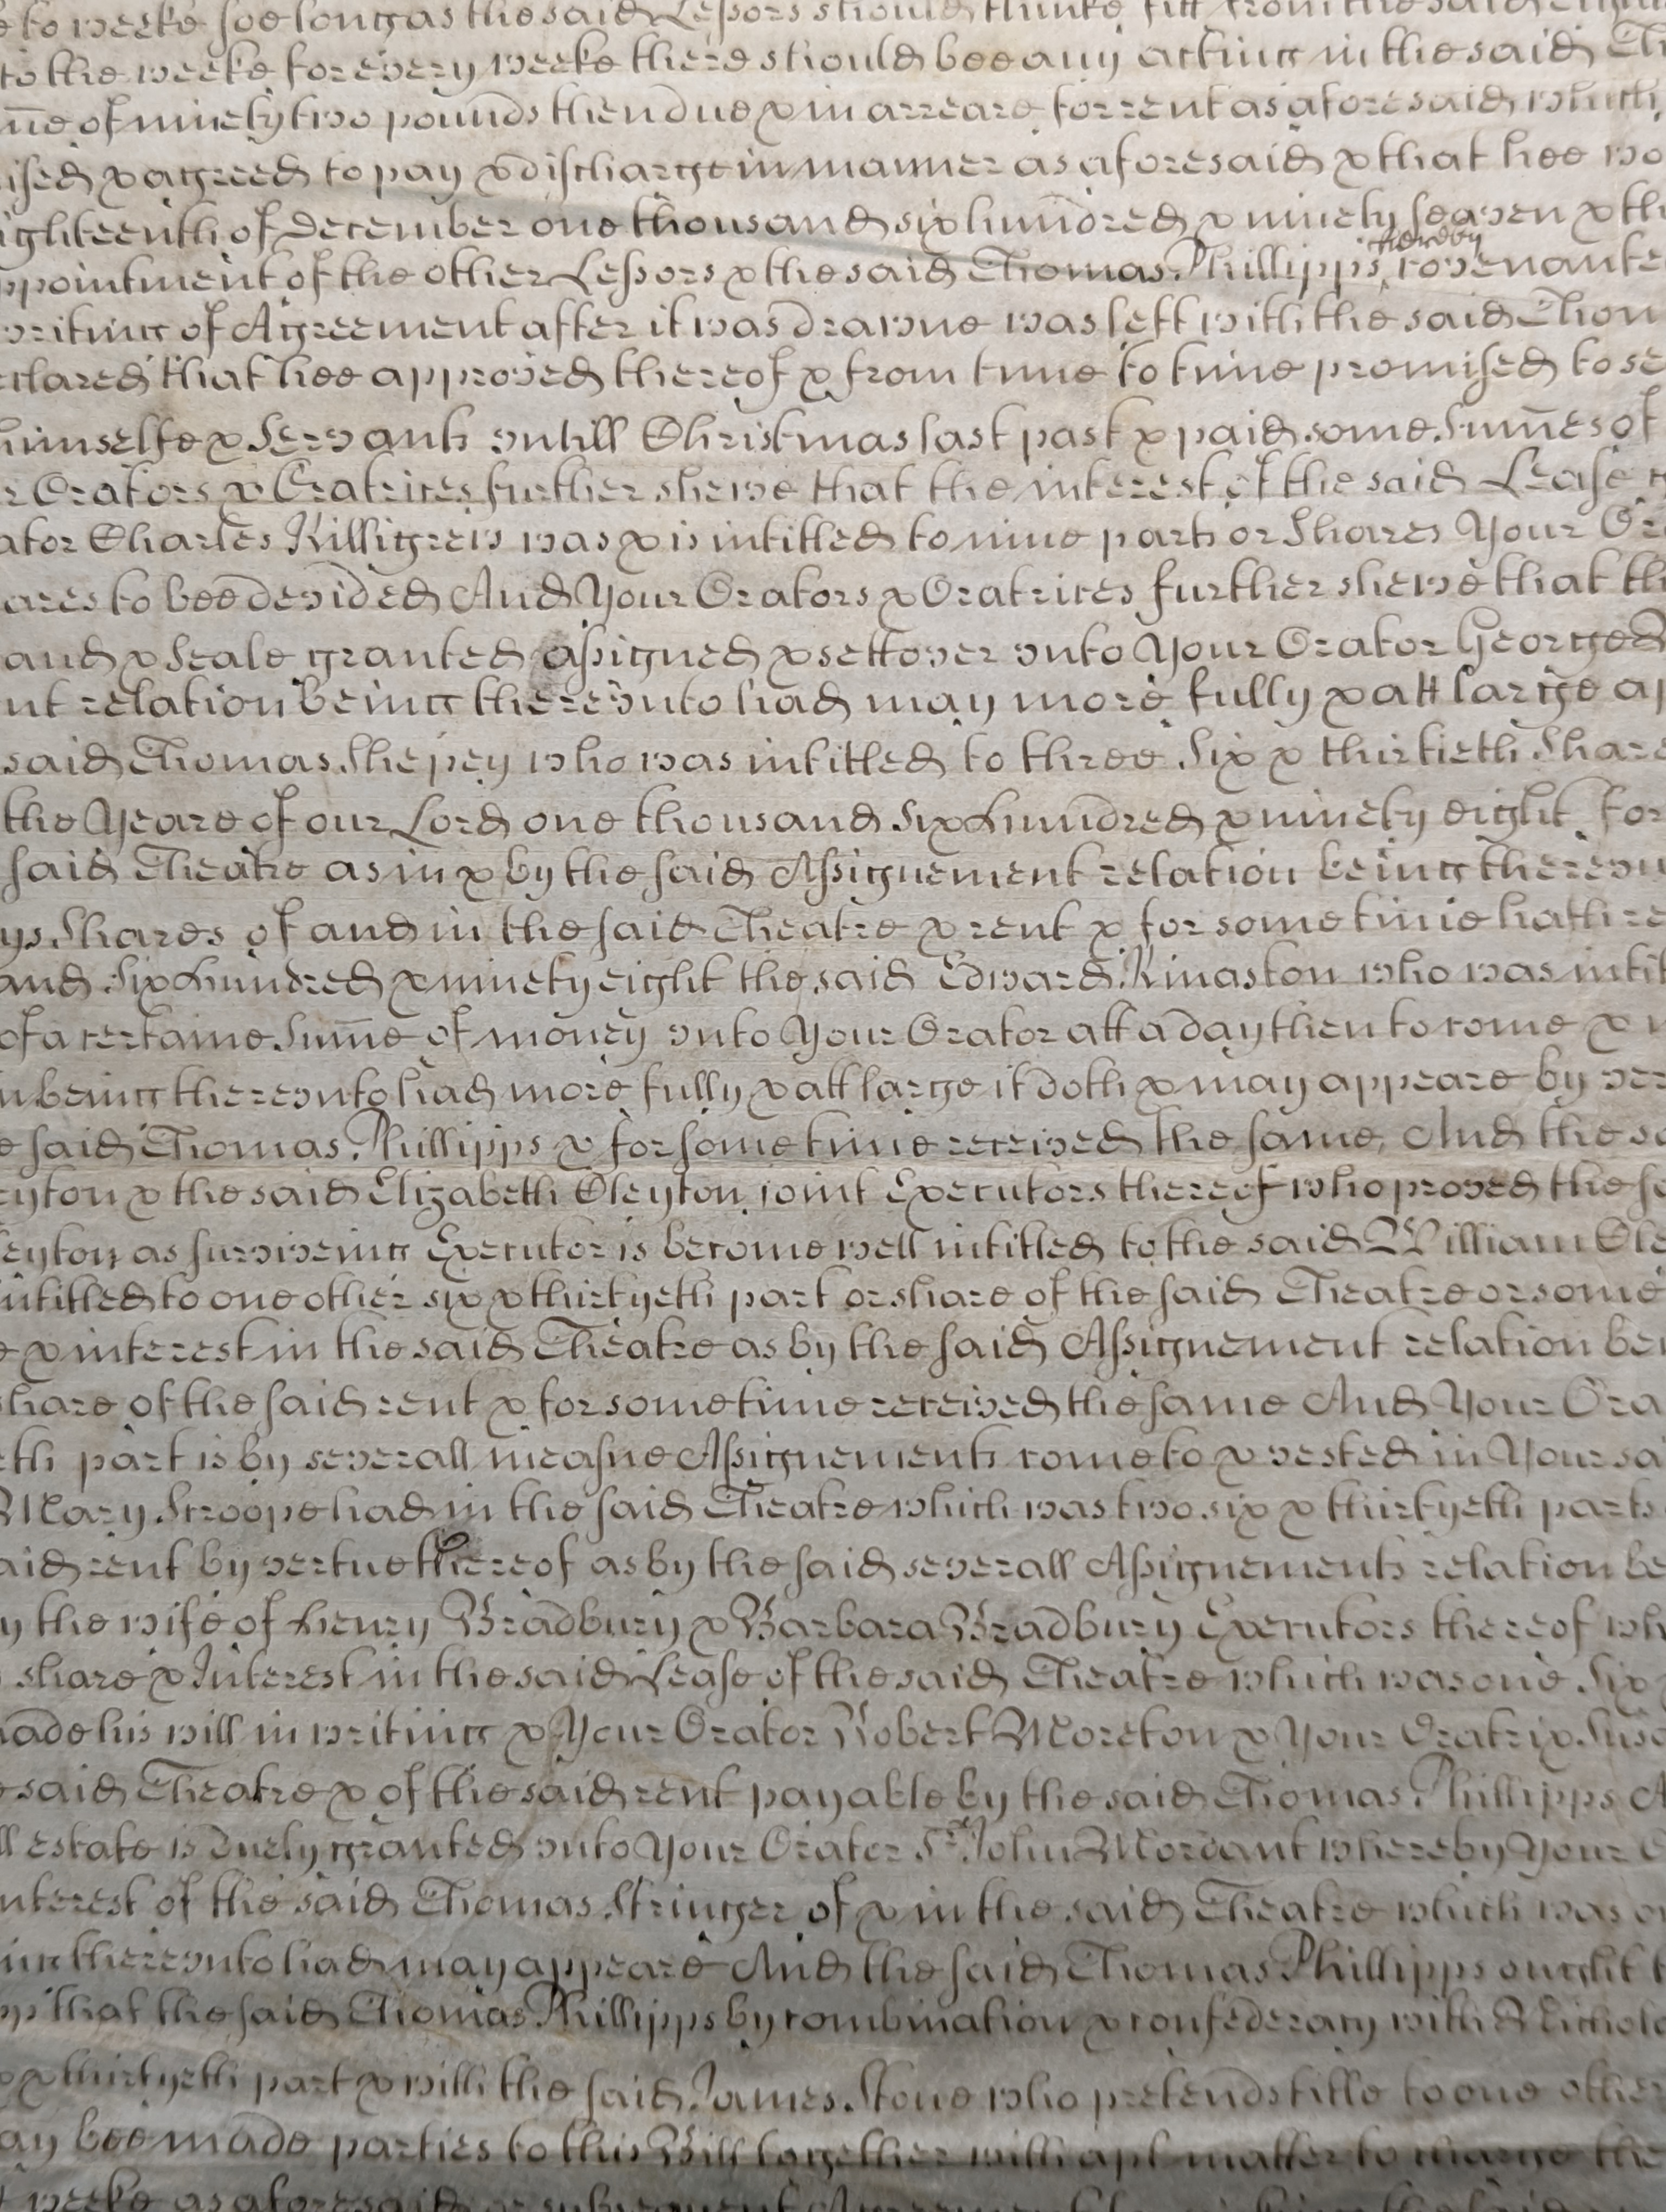 to weeke soe long as the said Lessors should thinke fitt from the said
to the weeke for every weeke there should bee any acting in the said
of ninety two pounds then due & in arreare for rent as aforesaid which
ised & agreed to pay & discharge in manner as aforesaid & that hee wo
ighteenth of December one thousand six hundred & ninety seaven & th
ppointment of the other Lessors & the said Thomas Phillipps hereby covenante
writing of Agreement after it was drawne was left with the said Thom
clared that hee approved thereof & from time to time promised to se
himselfe & Servants untill Christmas last past & paid some Sum̄es of
r Orators & Oratrices further shewe that the interest of the said Lease
ator Charles Killigrew was & is intitled to nine parts or Shares Your Or
ares to bee devided And Your Orators & Oratrices further shewe that th
and & Seale granted assigned & sett over unto Your Orator George
nt relation being thereunto had may more fully & att large ap
said Thomas Shepey who was intitled to three Six & thirtieth Share
the Yeare of our Lord one thousand Six Hundred & ninety eight for
said Theatre as in & by the said Assignement relation being thereu
ys Shares of and in the said Theatre & rent & for sometime hath re
and Six Hundred & ninety eight the said Edward Kinaston who was intit
of a certaine Sum̄e of money unto Your Orator att a day then to come &
n being thereunto had more fully & att large it doth & may appeare by
e said Thomas Phillipps & for sometime received the same And the sa
eyton & the said Elizabeth Cleyton joint Executors thereof who proved the sa
eyton as surviveing Executor is become well intitled to the said William Cle
intitled to one other six & thirtyeth part or share of the said Theatre or some
e & interest in the said Theatre as by the said Assignement relation bei
share of the said rent & for sometime received the same And Your Ora
eth part is by severall measne Assignements come to & vested in Your sa
Mary Stroope had in the said Theatre which was two six & thirtyeth parts
aid rent by vertue thereof as by the said severall Assignements relation be
y the wife of Henry Bradbury & Barbara Bradbury Executors thereof wh
share & Interest in the said Lease of the said Theatre which was one Six
made his will in writing & Your Orator Robert Moreton & Your Oratrix Susa
e said Theatre & of the said rent payable by the said Thomas Phillipps A
ll estate is duely granted unto Your Orator Sr. John Mordant whereby Your O
nterest of the said Thomas Stringer of & in the said Theatre which was on
ing thereunto had may appeare And the said Thomas Phillipps ought t
that the said Thomas Phillipps by combination & confederacy with Nichola
& thirtyeth part & with the said James Stone who pretends title to one other
ay bee made parties to this Bill together with apt matter to charge the
weeke as aforesaid or subsequent Agreement